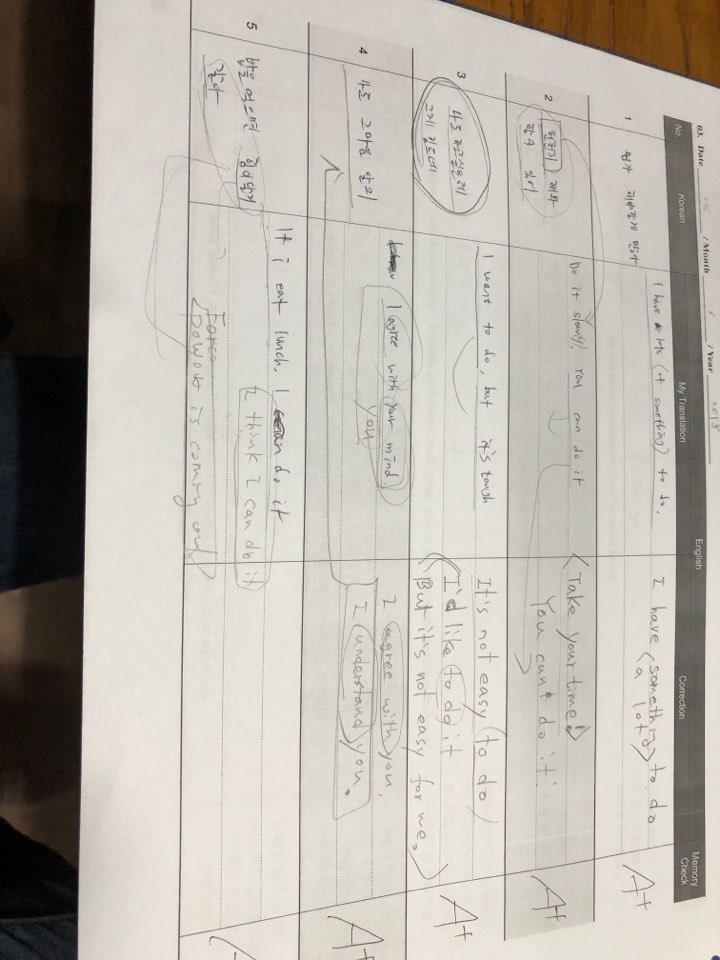 03. Date / Month 5 / Year 2018
No.
Korean
English
My Translation
Correction
Memory Check
1
I have lots (of something) to do.
I have (something) to do
(a lot of)
A+
2
할 수 있어
Do it slowly, you can do it
(Take your time!)
You can do it!
A+
3
나도 하고 싶은데
그게 힘드네
I want to do, but it's tough
It's not easy (to do)
(I'd like to do it
But it's not easy for me.)
A+
4
나도 그 마음 알지
I agree with your mind.
you
I agree with you.
I understand you.
A+
5
밥을 먹으면 힘이 날거 같아
If i eat lunch, I can do it
I think i can do it
Force
power is coming out